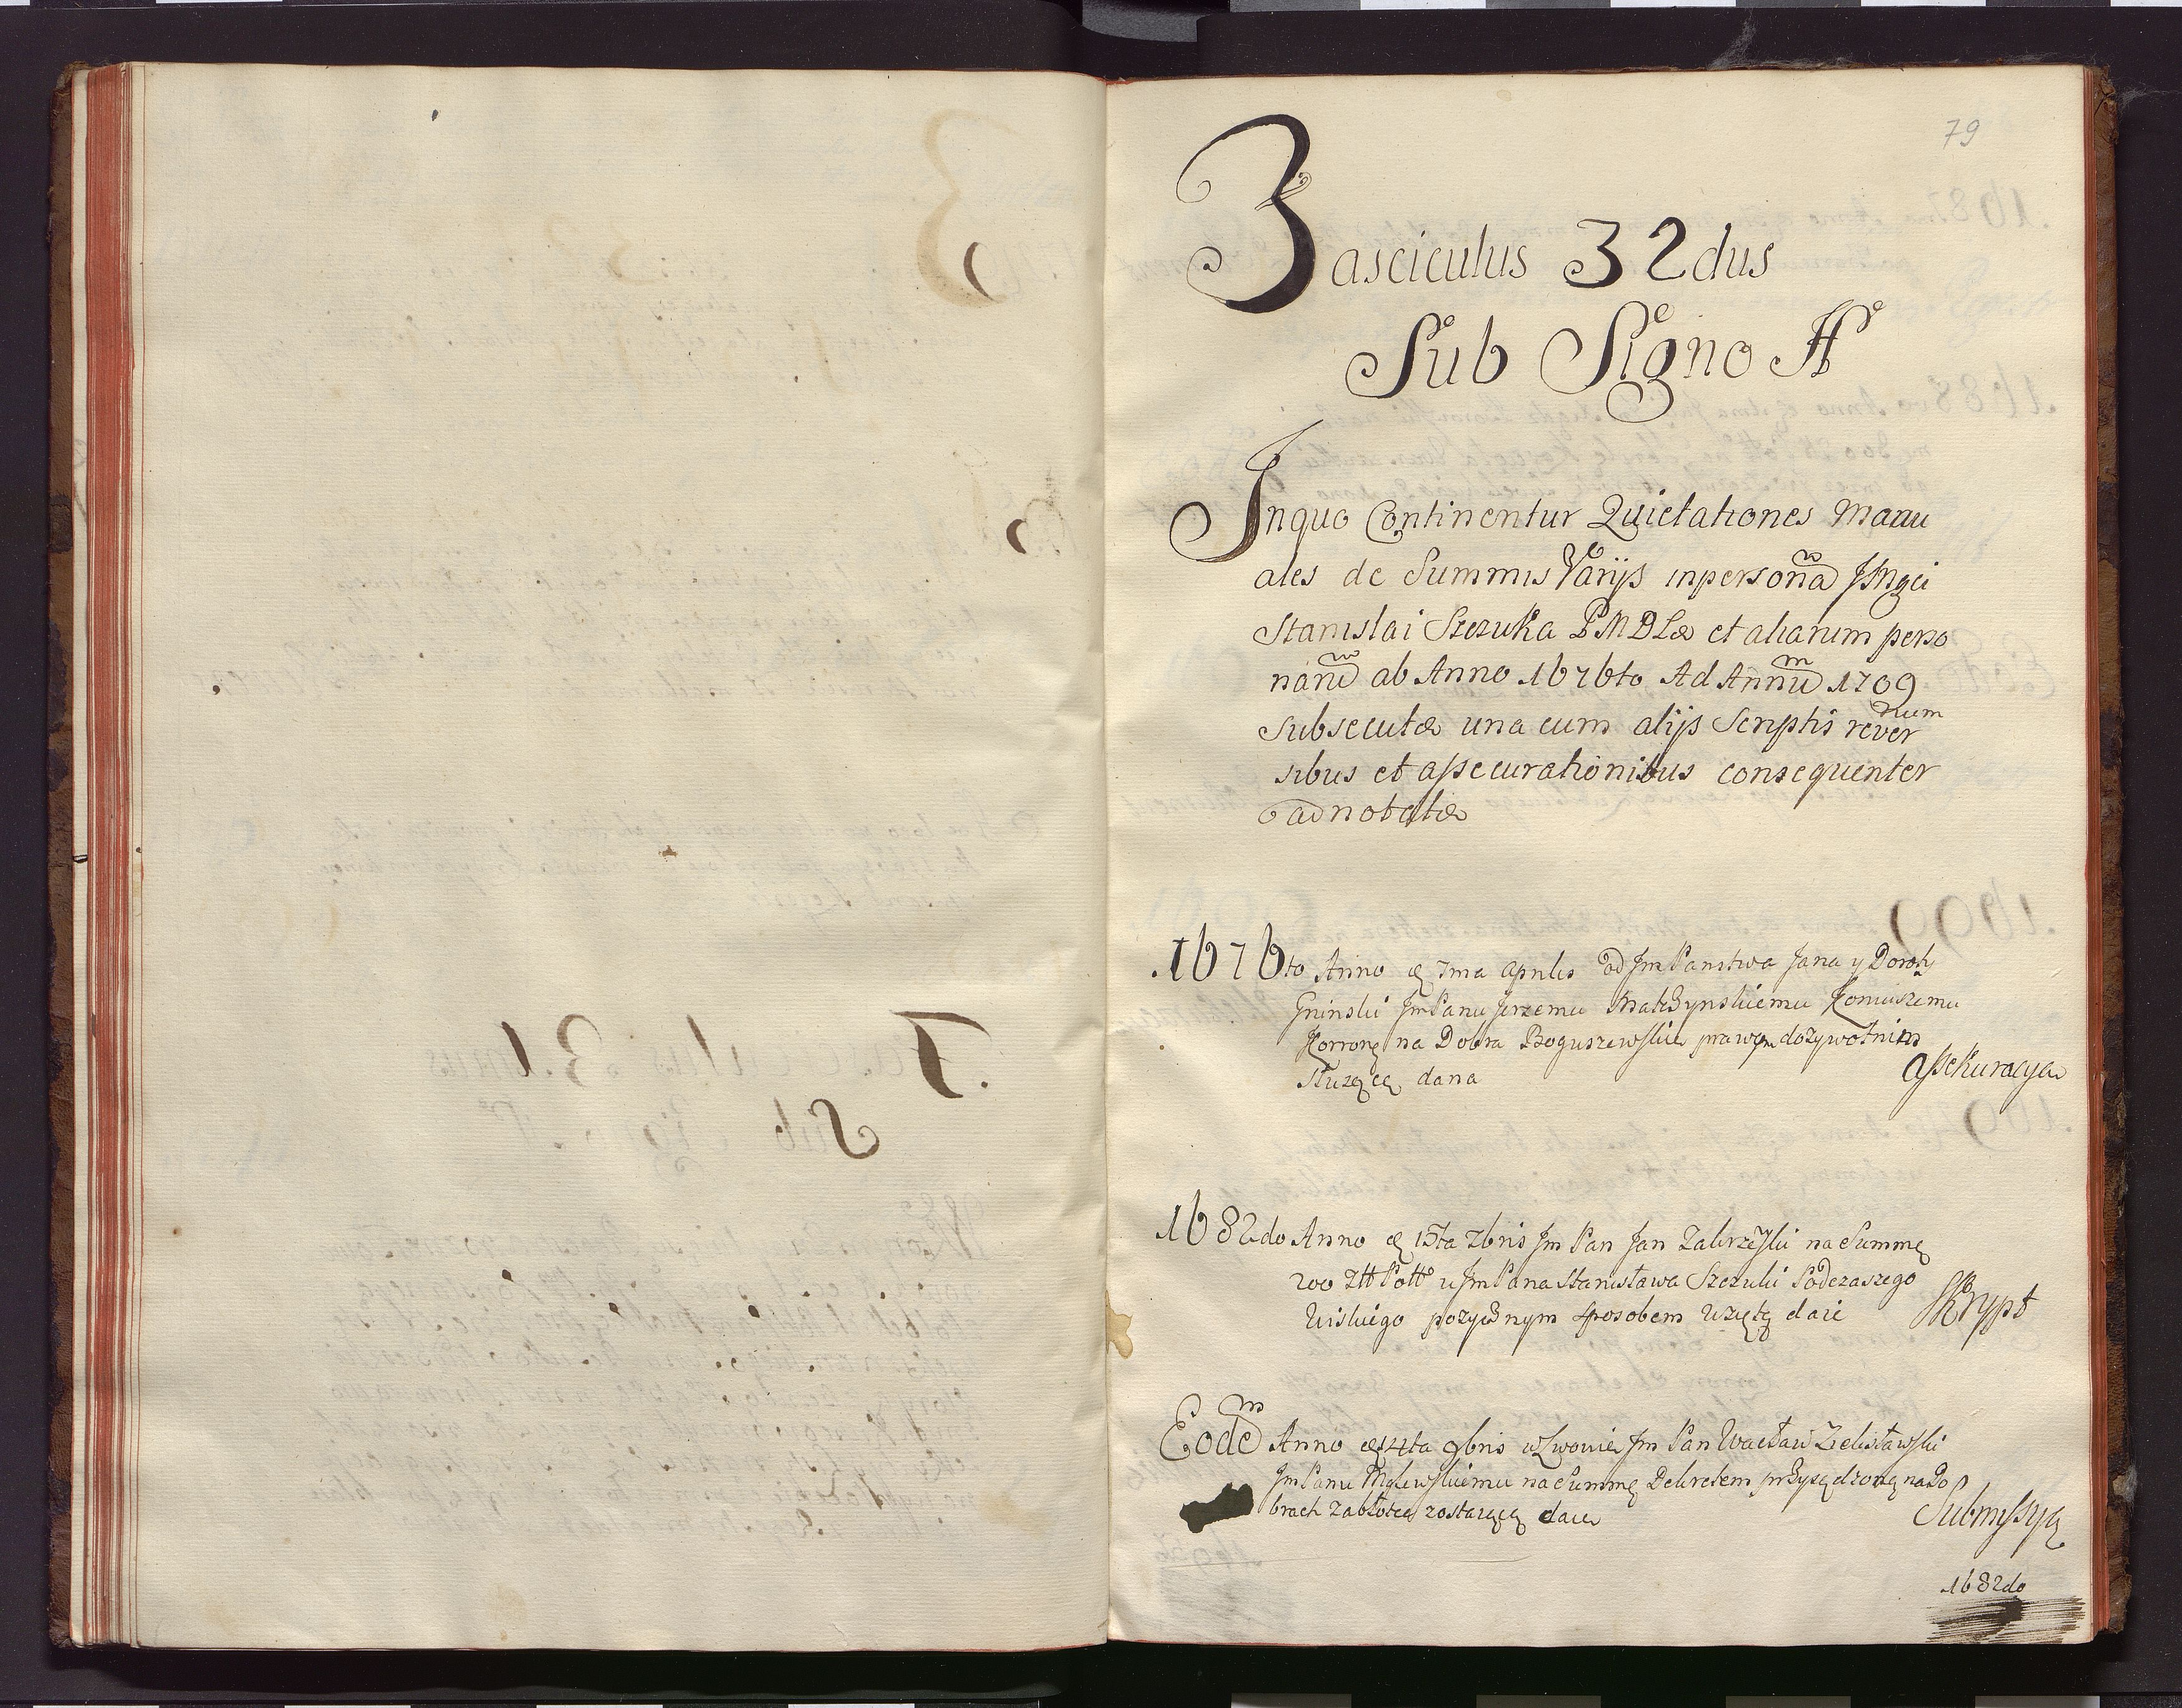 79
Fasciculus 32dus
Sub Signo H
Inquo Continentur Quietationes Manu
ales de Summis Varijs inpersona
Stanislai Szczuka PMDLæ et aliarum perso
naru ab Anno 1676to Ad Annu 1709
num
subsecutæ una cum alijs Scriptis rever
sibus et assecurationibus consequenter
adnotatæ
1676to Anno 7ma Aprilis od Jm Panstwa Jana y Doroty
Gninski Jm Panu Jerzemu Matczynskiemu Koniuszemu
Korronę na Dobra Boguszewskie prawem dozywotnim
słuzęcę dana
Assekuracya
1682do Anno 15ta 7bris Jm Pan Jan Zakrzeski na Summę
200 Złł Poll u Jm Pana Stanisława Szczuki Podczaszego
Wiskiego pozycznym sposobem wziętę daie
Skrypt
Eode Anno 9bris wLwowie Jm Pan Wacław Zielisławski
Jm Panu na Summę Dekretem przysędzonę na Do
brach Zabłotce zostaięcę daie
Submissyę
1682do